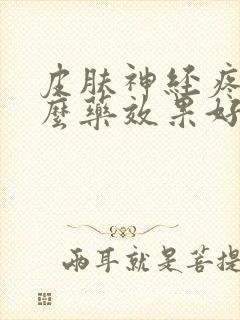 皮肤神经疼
麼藥效果好
两耳就是菩提